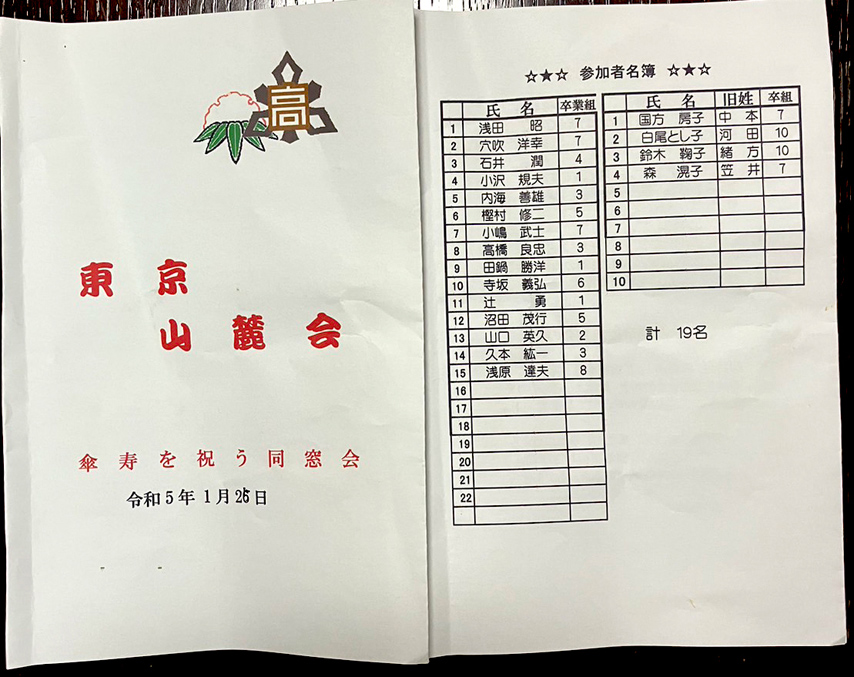 高
東京
山麓会
傘寿を祝う同窓会
令和5年1月26日
☆★☆ 参加者名簿 ☆★☆
氏 名 卒業組
1 浅田 昭 7
2 穴吹 洋幸 7
3 石井 潤 4
4 小沢 規夫 1
5 内海 善雄 3
6 樫村 修二 5
7 小嶋 武士 7
8 高橋 良忠 3
9 田鍋 勝洋 1
10 寺坂 義弘 6
11 辻 勇 1
12 沼田 茂行 5
13 山口 英久 2
14 久本 紘一 3
15 浅原 達夫 8
16
17
18
19
20
21
22
氏 名 旧姓 卒組
1 国方 房子 中本 7
2 白尾とし子 河田 10
3 鈴木 鞠子 緒方 10
4 森 滉子 笠井 7
5
6
7
8
9
10
計 19名